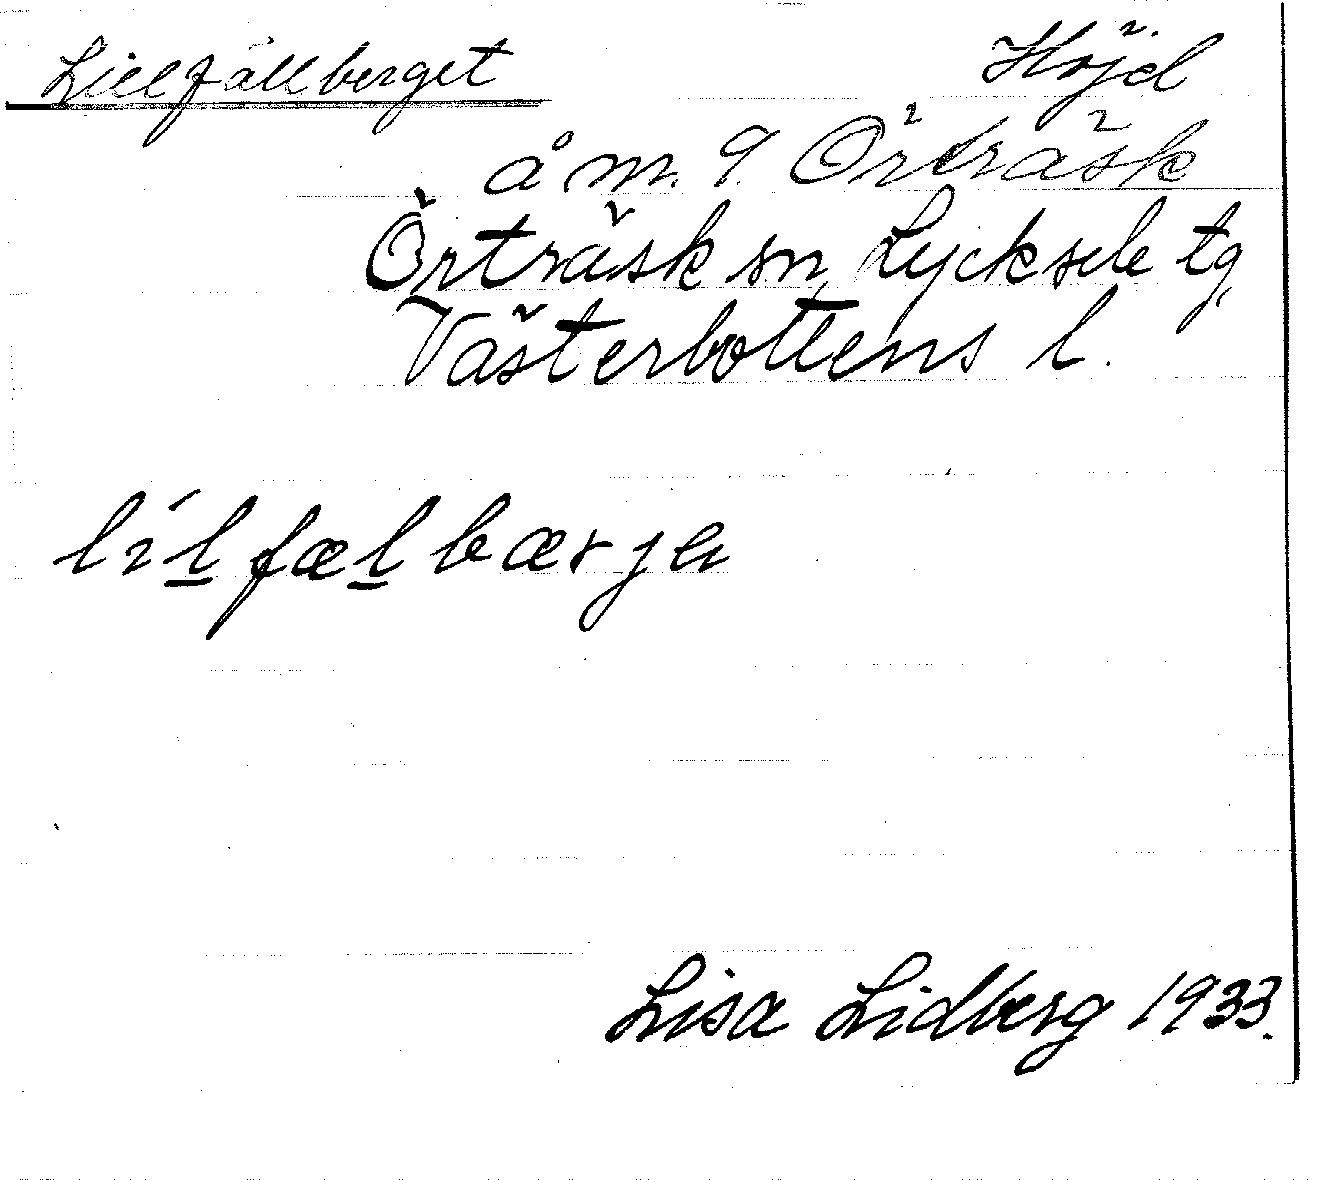 Lillfällberget Höjd
å m. 9. Örträsk
Örträsk sn, Lycksele tg,
Västerbottens l.
lílfælbærjeɴ
Lisa Lidberg 1933.